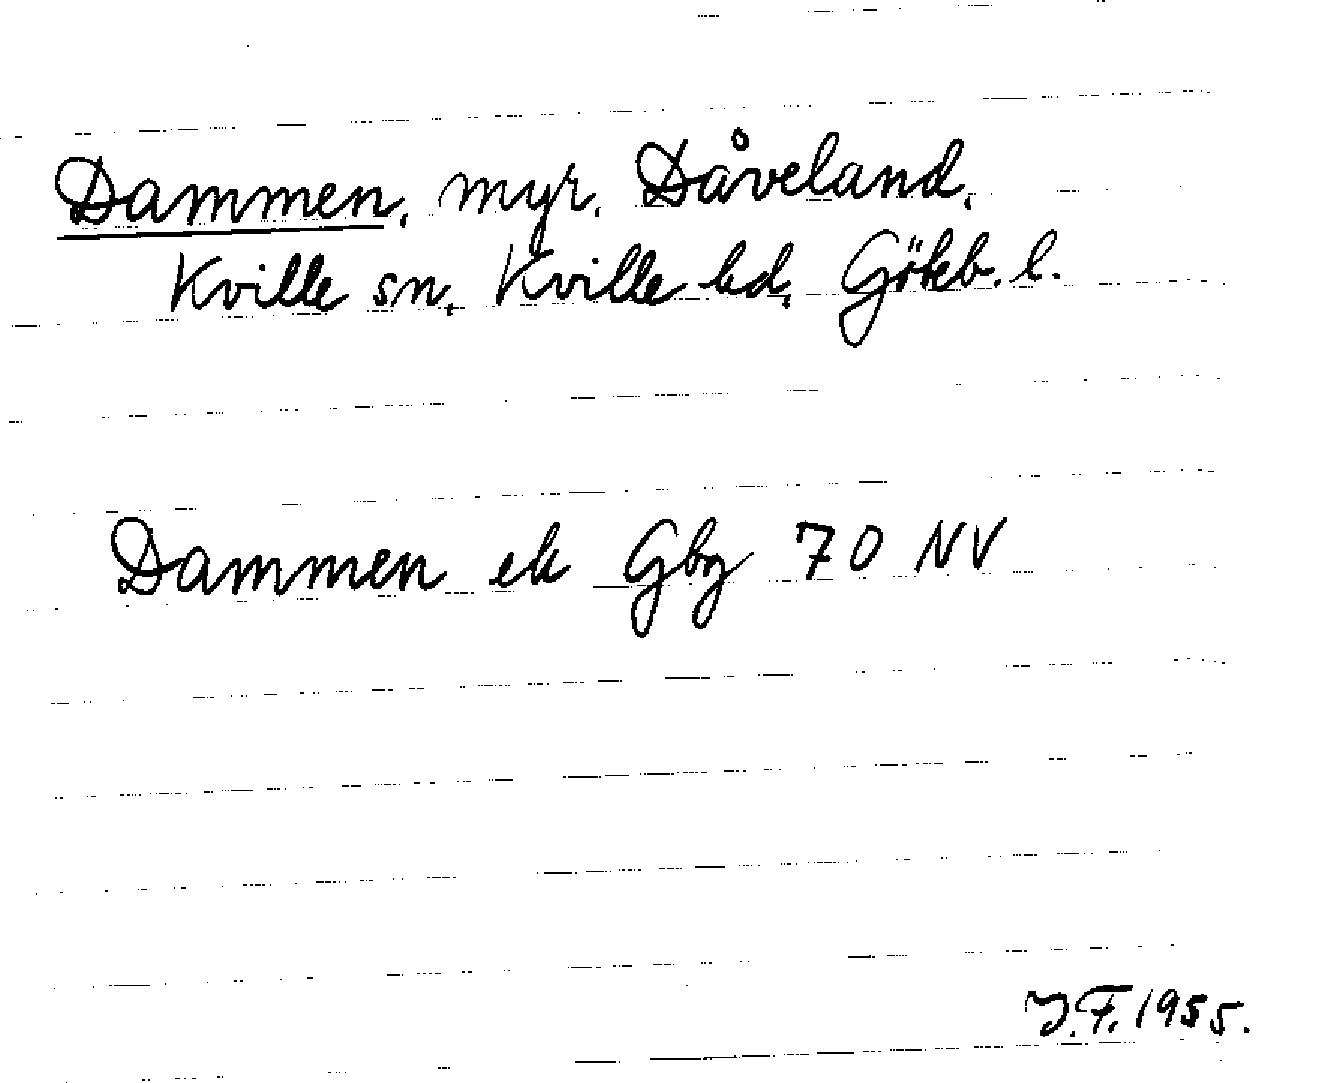 Dammen, myr. Dåveland,
Kville sn, Kville hd, Gökb. l.
Dammen ek Gbg 70 NV
J.F. 1955.